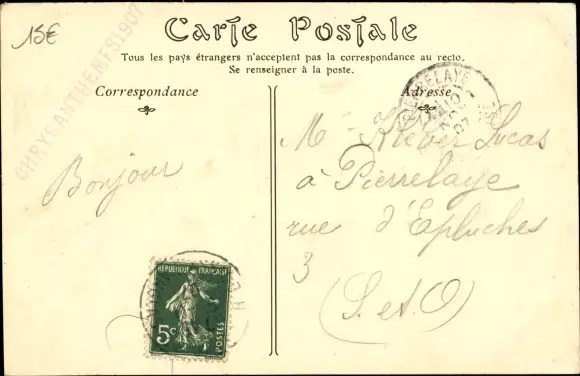 15€
CHRYSANTHEMES 1907
Carte Postale
Tous les pays étrangers n'acceptent pas la correspondance au recto.
Se renseigner à la poste.
Correspondance
Adresse
PIERRELAYE
Bonjour
Mr Kléber Lucas
à Pierrelaye
rue d'Epluches
3
(S. et O)
REPUBLIQUE FRANÇAISE
5c
POSTES